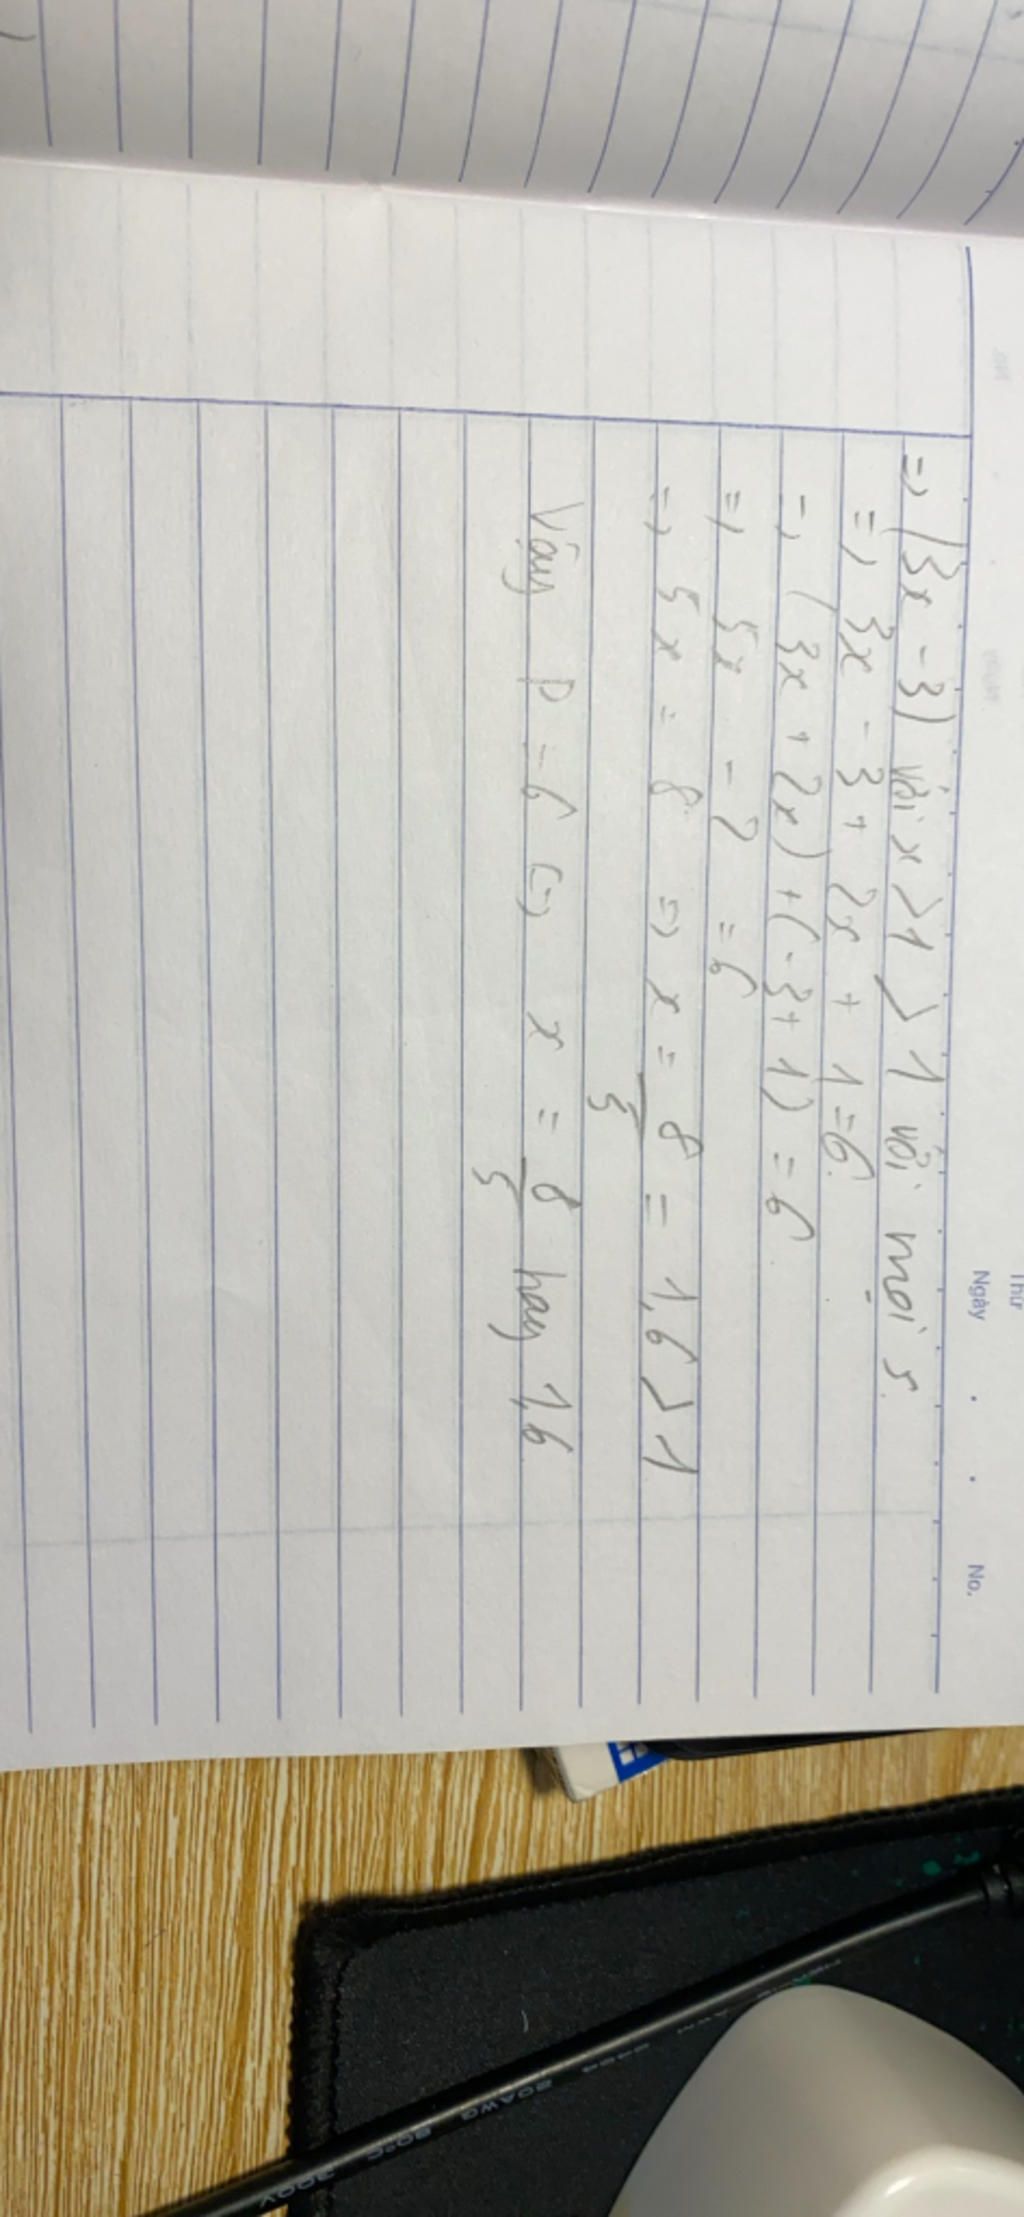 Thứ
Ngày . . No.
=> (3x - 3) với x > 1 > 1 với mọi s.
=> 3x - 3 + 2x + 1 = 6.
=> (3x + 2x) + (-3 + 1) = 6
=> 5x - 2 = 6
=> 5x = 8 => x = 8/5 = 1,6 > 1
Vậy P = 6 (=) x = 8/5 hay 1,6
20AWG 80°C 300V